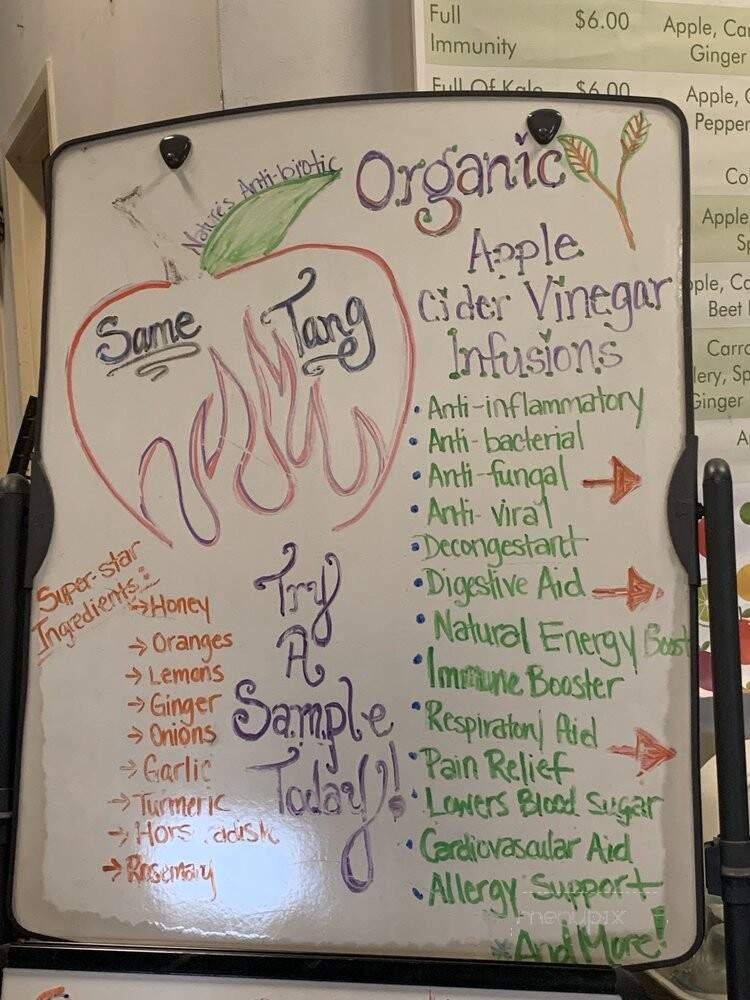 Full
Immunity
$6.00
Apple, Ca
Ginger
Full Of Kale
$6.00
Apple,
Pepper
Co
Apple
Sp
ple, Ca
Beet
Carro
lery, Sp
Ginger
A
Nature's Anti-biotic
Organic
Apple
Cider Vinegar
Infusions
Same Tang
• Anti-inflammatory
• Anti-bacterial
• Anti-fungal
• Anti-viral
• Decongestant
• Digestive Aid
• Natural Energy Boost
• Immune Booster
• Respiratory Aid
• Pain Relief
• Lowers Blood Sugar
• Cardiovascular Aid
• Allergy Support
*And More!
Super-star
Ingredients:
→Honey
→Oranges
→Lemons
→Ginger
→Onions
→Garlic
→Turmeric
→Hors adish
→Rosemary
Try
A
Sample
Today!
menupix